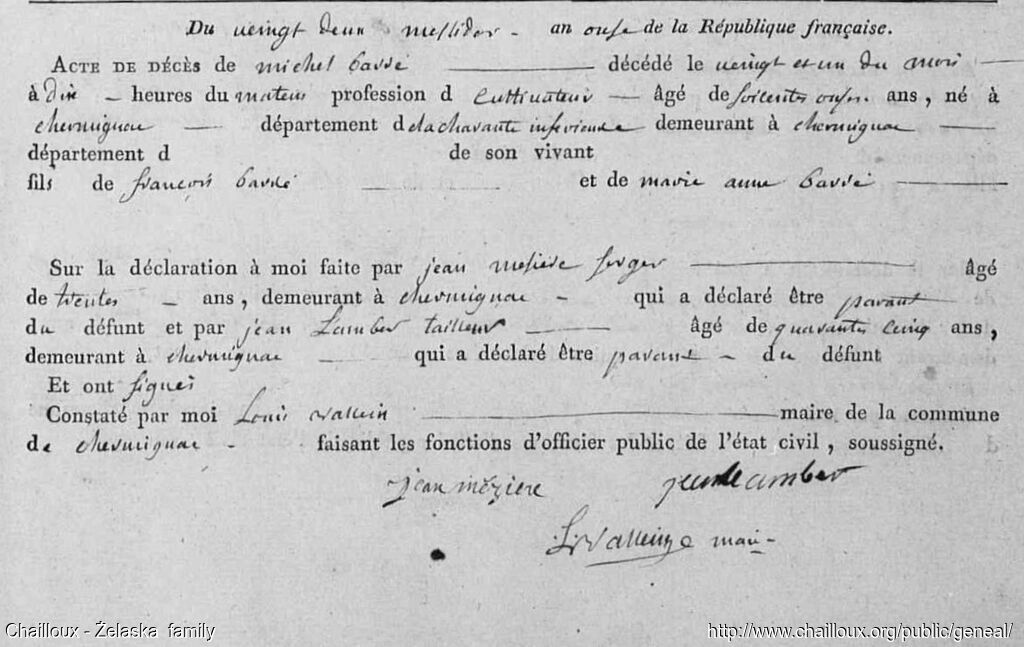 Du veingt deux messidor - an onse de la République française.
ACTE DE DÉCÈS de michel bassé décédé le veingt et un du mois
à dix - heures du mateis profession d Cultivateur - âgé de soicente onse ans, né à
chermignac - département d ela charante inferieure demeurant à chermignac
département d de son vivant
fils de françois bassé et de marie anne bassé
Sur la déclaration à moi faite par jean mesiere âgé
de trentes - ans, demeurant à chermignac - qui a déclaré être parant
du défunt et par jean Lambert tailleur âgé de quarante cinq ans,
demeurant à chermignac - qui a déclaré être parant - du défunt
Et ont signés
Constaté par moi Louis vallein maire de la commune
de chermignac - faisant les fonctions d'officier public de l'état civil, soussigné.
jean mézière jean lambert
L. Vallein maire
Chailloux - Żelaska family http://www.chailloux.org/public/geneal/